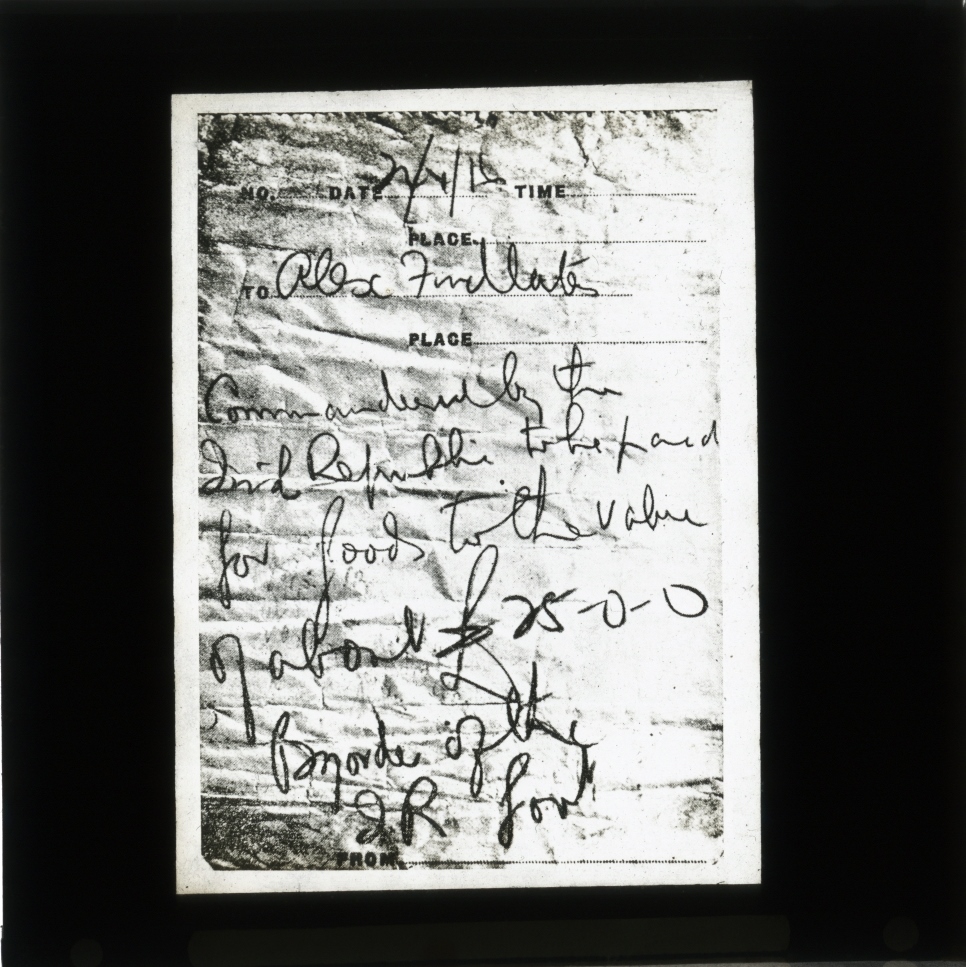 NO. DATE 2/4/16 TIME
PLACE
TO Alex Findlater
PLACE
Commandeered by the
Irish Republic to be paid
for foods to the value
of about £25-0-0
By order of the
IR Gov
FROM